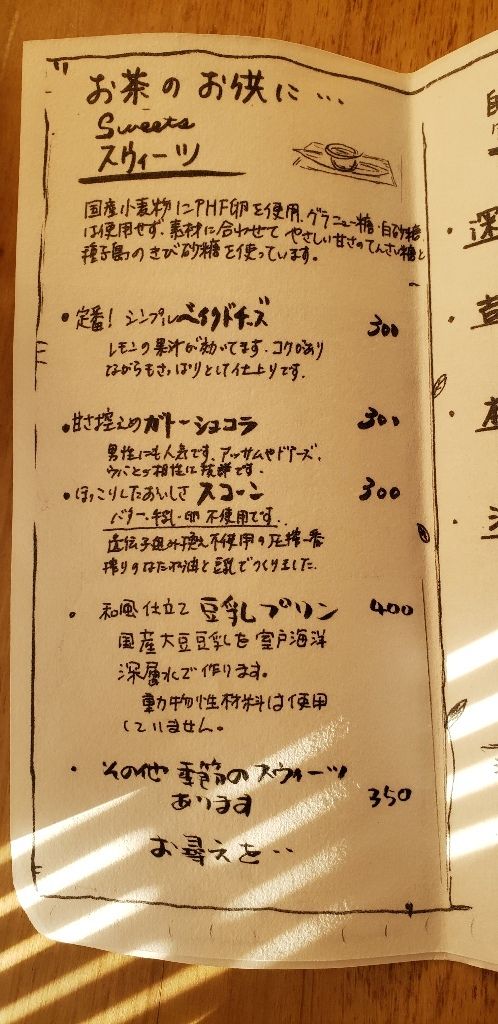 お茶のお供に…
Sweets
スウィーツ
国産小麦粉にPHF卵を使用、グラニュー糖・白砂糖
は使用せず、素材に合わせて やさしい甘さのてんさい糖と
種子島のきび砂糖を使っています。
・定番! シンプルベイクドチーズ 300
レモンの果汁が効いてます。コクがあり
ながらもさっぱりとして仕上りです。
・甘さ控えめガトーショコラ 300
男性にも人気です。アッサムやドアーズ、
ウバとの相性は抜群です。
・ほっこりしたおいしさ スコーン 300
バター・牛乳・卵 不使用です。
遺伝子組み換え不使用の圧搾一番
搾りのなたね油と豆乳でつくりました。
・和風仕立て 豆乳プリン 400
国産大豆豆乳を室戸海洋
深層水で作ります。
動物性材料は使用
していません。
・その他 季節のスウィーツ
あります 350
お尋ねを‥